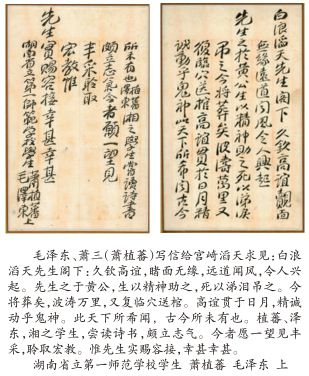 白浪滔天先生閣下久欽高誼覿面
無緣遠道聞風令人興起
先生之於黄公生以精神助之死以涕淚
吊之今將葬矣波濤萬里又
復臨穴送棺高誼貫於日月精
誠動乎鬼神此天下所希聞古今
所未有也植蕃澤東湘之學生嘗讀詩書
頗立志氣今者願一望見
丰采聆取
宏教惟
先生實賜容接幸甚幸甚
湖南省立第一師範學校學生 蕭植蕃 毛澤東 上
毛泽东、萧三(萧植蕃)写信给宫崎滔天求见:白浪
滔天先生阁下:久钦高谊,睹面无缘,远道闻风,令人兴
起。先生之于黄公,生以精神助之,死以涕泪吊之。今
将葬矣,波涛万里,又复临穴送棺。高谊贯于日月,精诚
动乎鬼神。此天下所希闻,古今所未有也。植蕃、泽
东,湘之学生,尝读诗书,颇立志气。今者愿一望见丰
采,聆取宏教。惟先生实赐容接,幸甚幸甚。
湖南省立第一师范学校学生 萧植蕃 毛泽东 上